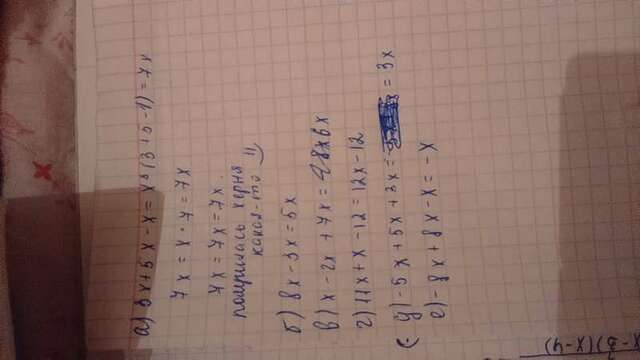 а) 3x+5x-x=x·(3+5-1)=7x
7x=x·7=7x
7x=7x=7x.
получилась херня
какая-то
б) 8x-3x=5x
в) x-2x+7x=6x
г) 11x+x-12=12x-12
д) -5x+5x+3x= =3x
е) -8x+8x-x=-x
x-2)(x-4)